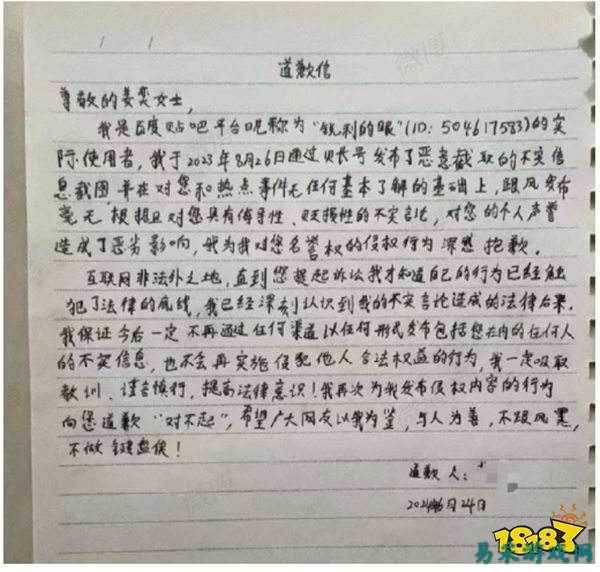 道歉信
尊敬的姜雯女士,
我是百度贴吧平台昵称为“锐利的眼”(ID:504617583)的实
际使用者,我于2023年8月26日通过贝长号发布了恶意截取的不实信
息截图,并在对您和热点事件无任何基本了解的基础上,跟风发布
毫无根据且对您具有侮辱性、贬损性的不实言论,对您的个人声誉
造成了恶劣影响,我为我对您名誉权的侵权行为深感抱歉。
互联网非法外之地,直到您提起诉讼我才知道自己的行为已经触
犯了法律的底线,我已经深刻认识到我的不实言论造成的法律后果。
我保证今后一定不再通过任何渠道以任何形式发布包括您在内的任何人
的不实信息,也不会再实施侵犯他人合法权益的行为,我一定吸取
教训、谨言慎行,提高法律意识!我再次为我发布侵权内容的行为
向您道歉“对不起”,希望广大网友以我为鉴,与人为善,不跟风黑,
不做键盘侠!
道歉人:
2024年6月24日
18183
易采游戏网